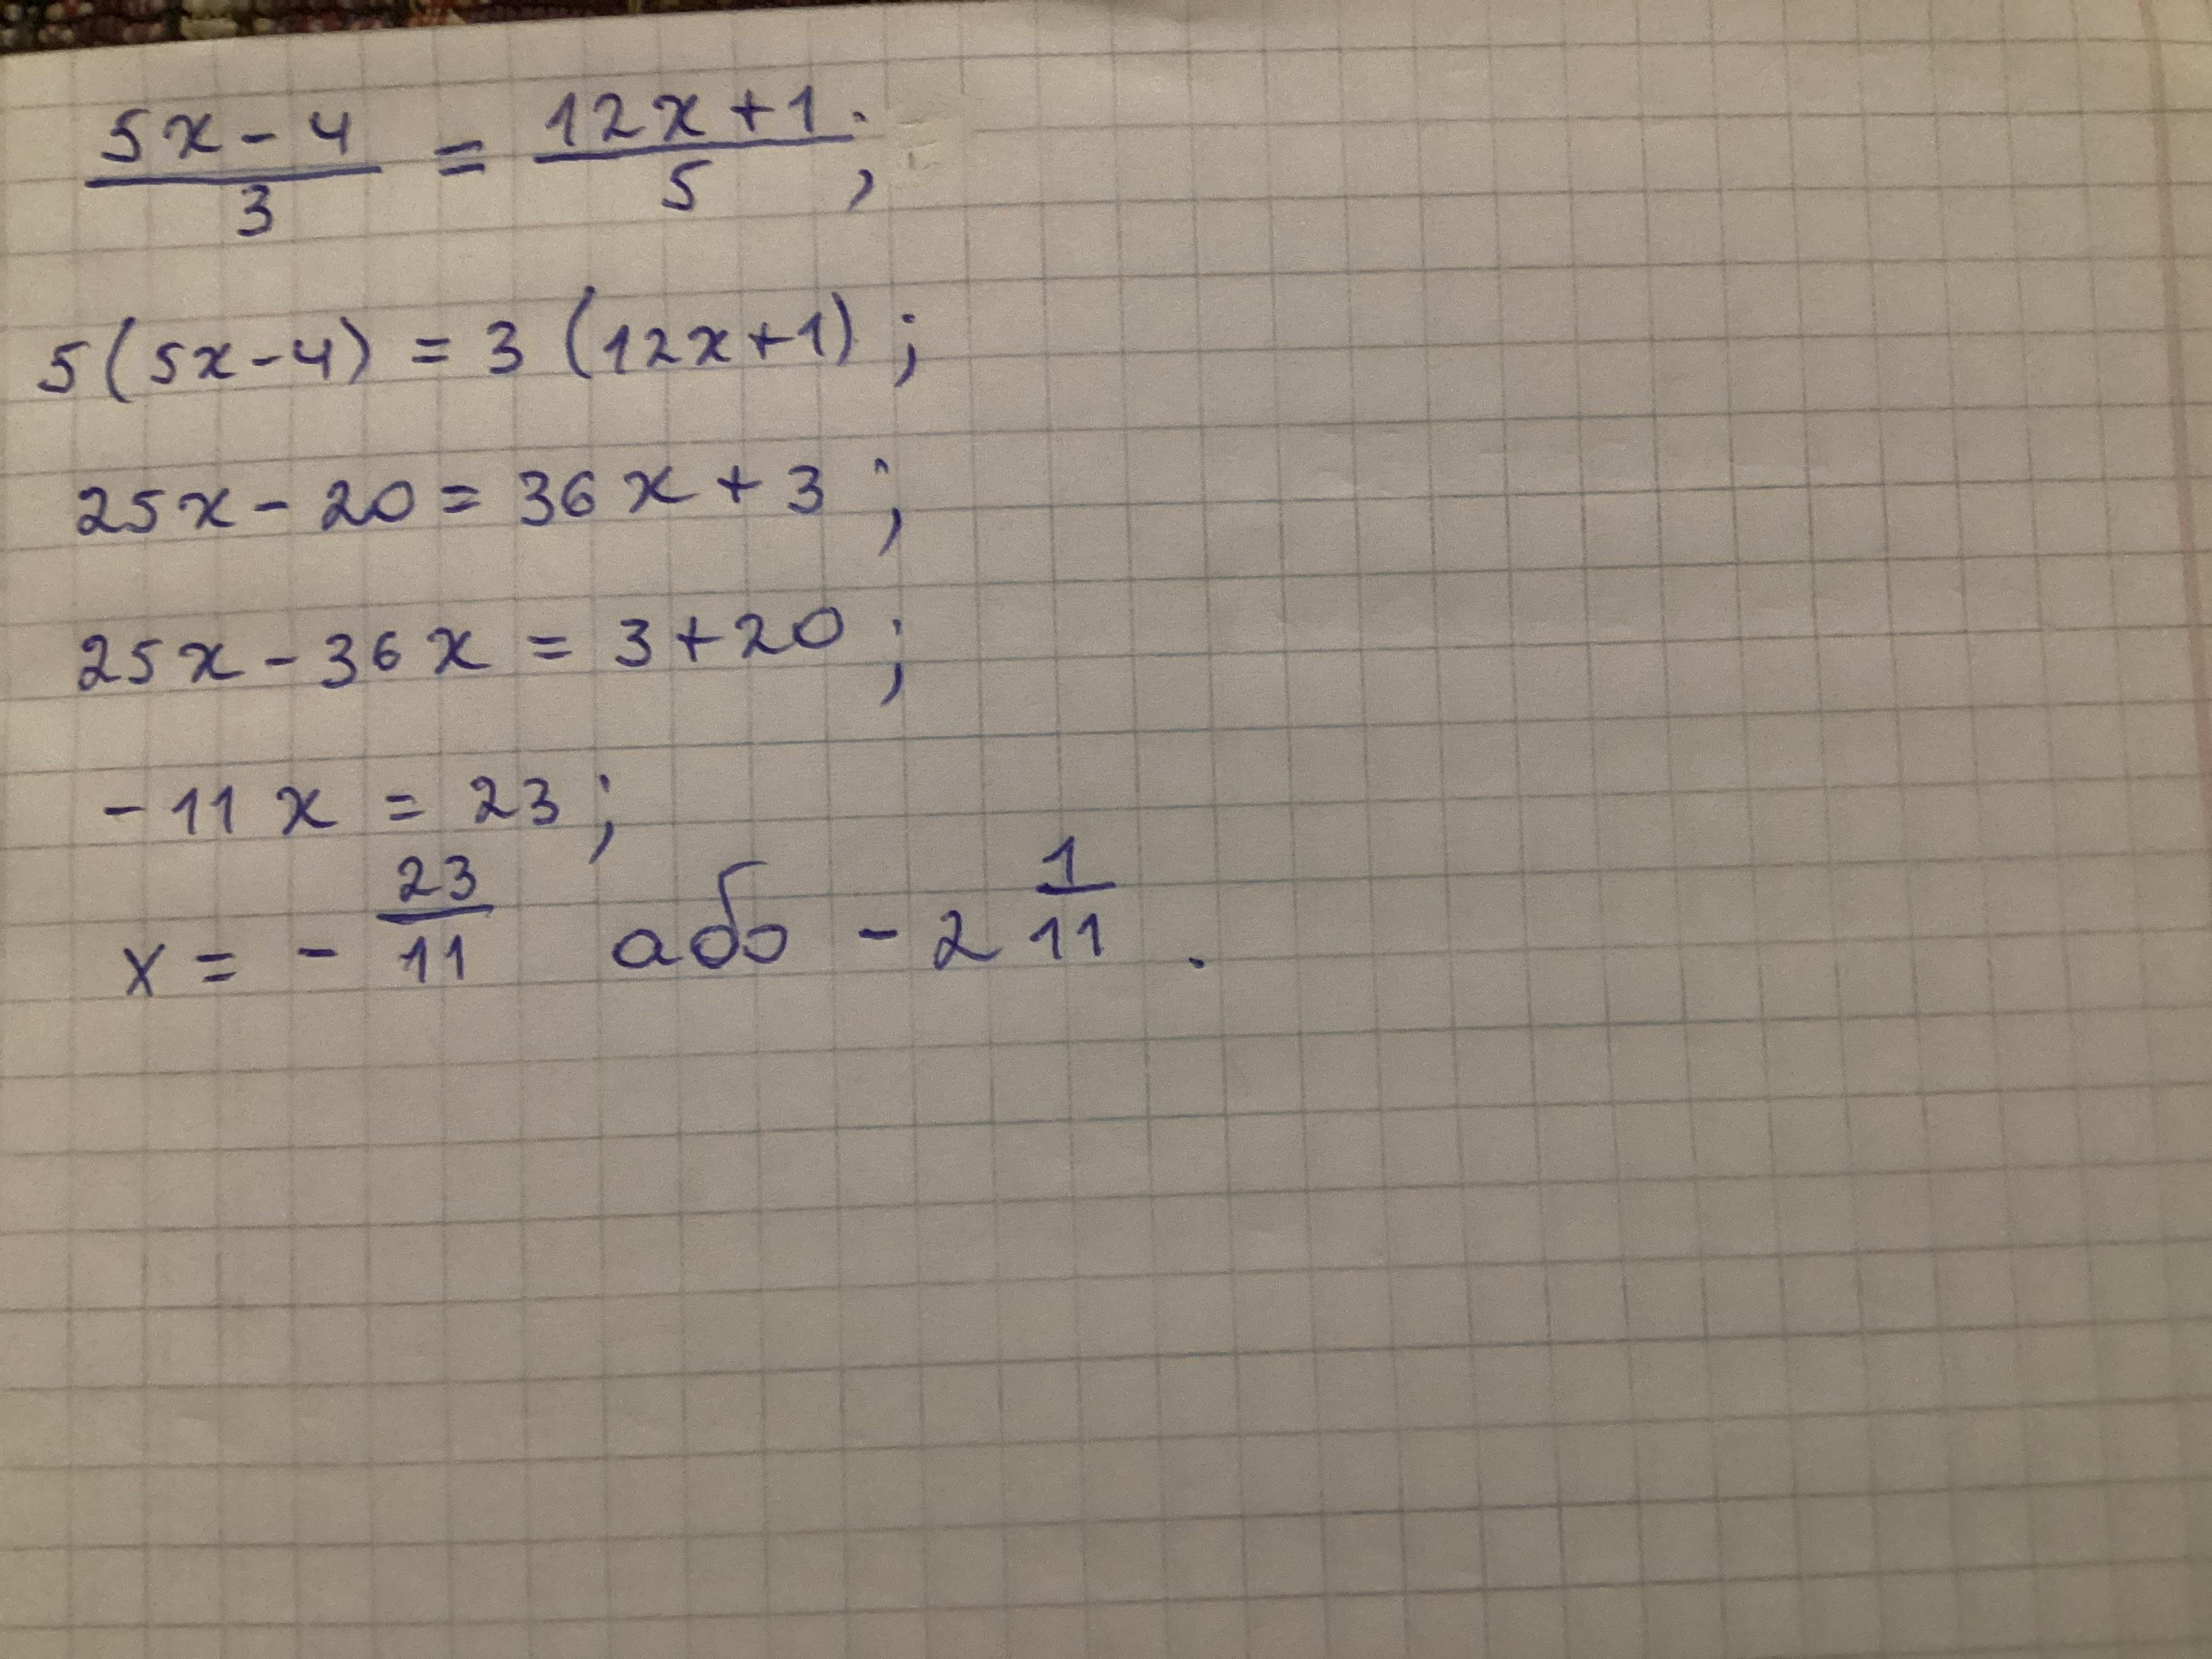 (5x-4)/3 = (12x+1)/5;
5(5x-4) = 3(12x+1);
25x-20 = 36x+3;
25x-36x = 3+20;
-11x = 23;
x = -23/11 або -2 1/11.